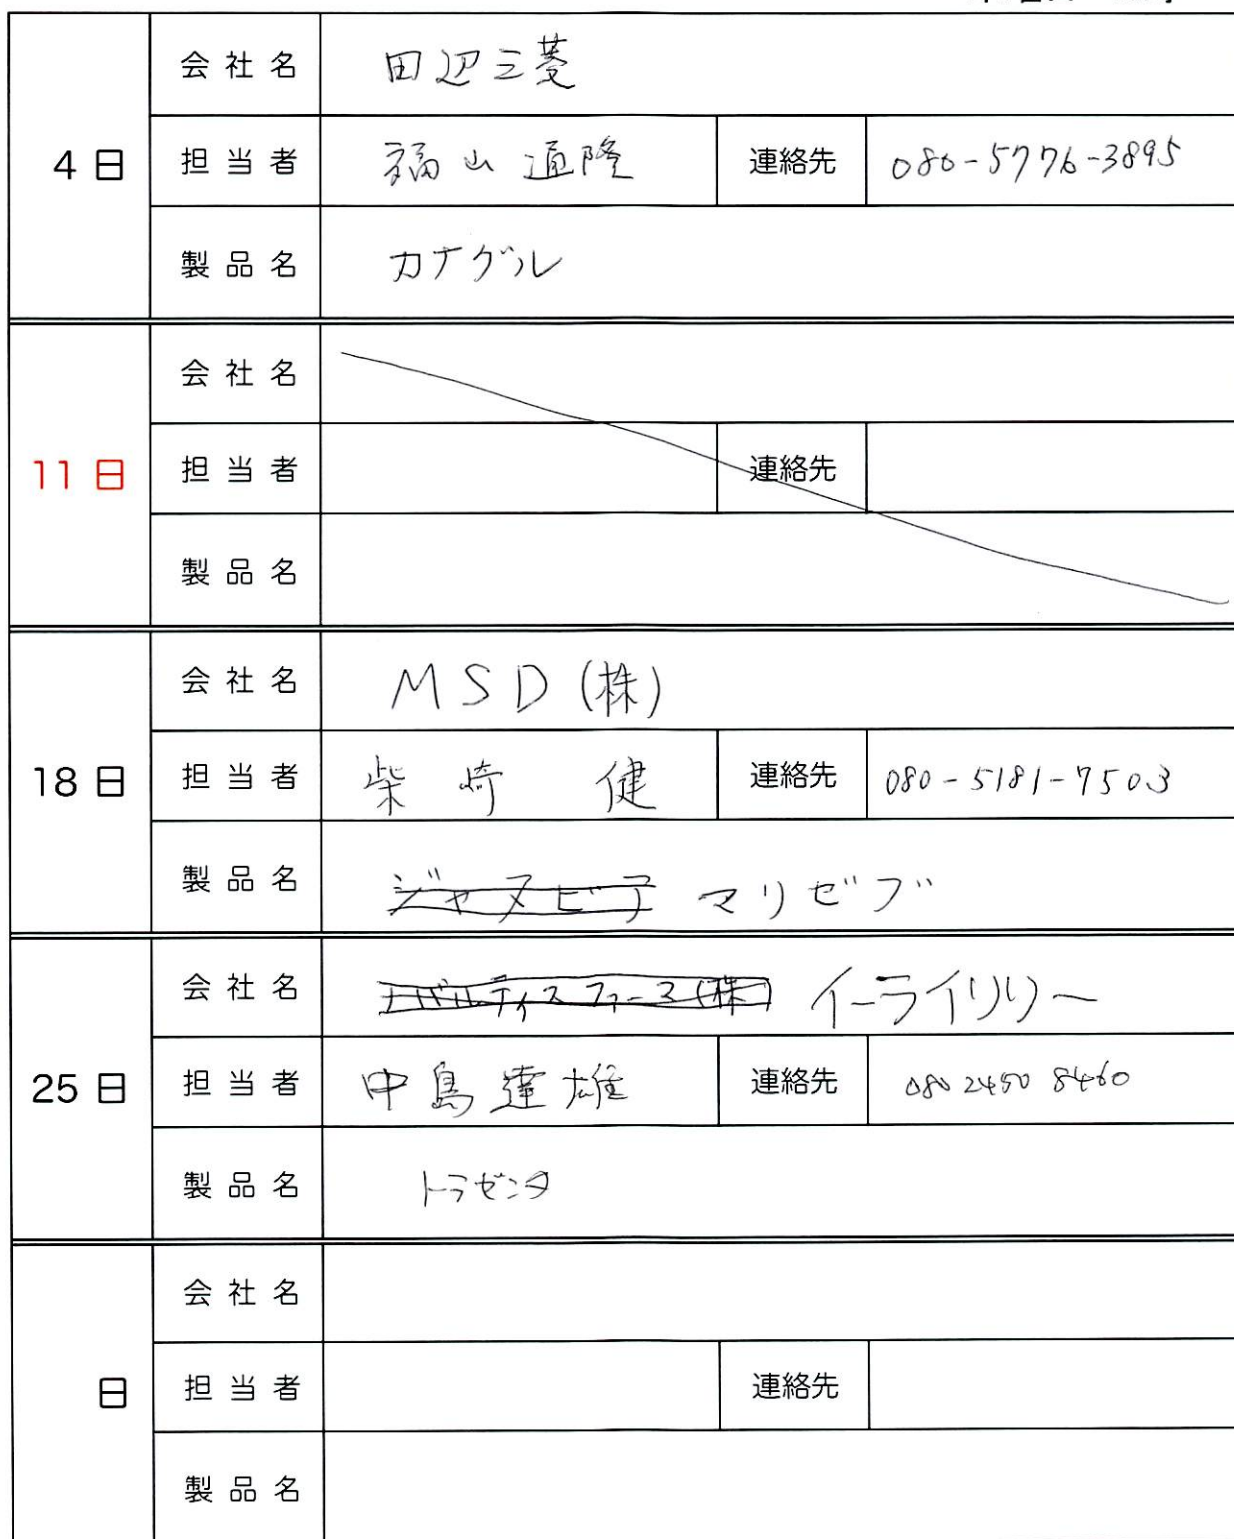 会社名 田辺三菱
4日 担当者 福山通隆 連絡先 080-5776-3895
製品名 カナグル
会社名
11日 担当者 連絡先
製品名
会社名 MSD(株)
18日 担当者 柴崎 健 連絡先 080-5181-7503
製品名 ジャヌビア マリゼブ
会社名 ノバルティスファーマ(株) イーライリリー
25日 担当者 中島達雄 連絡先 080 2450 8460
製品名 トラゼンタ
会社名
日 担当者 連絡先
製品名